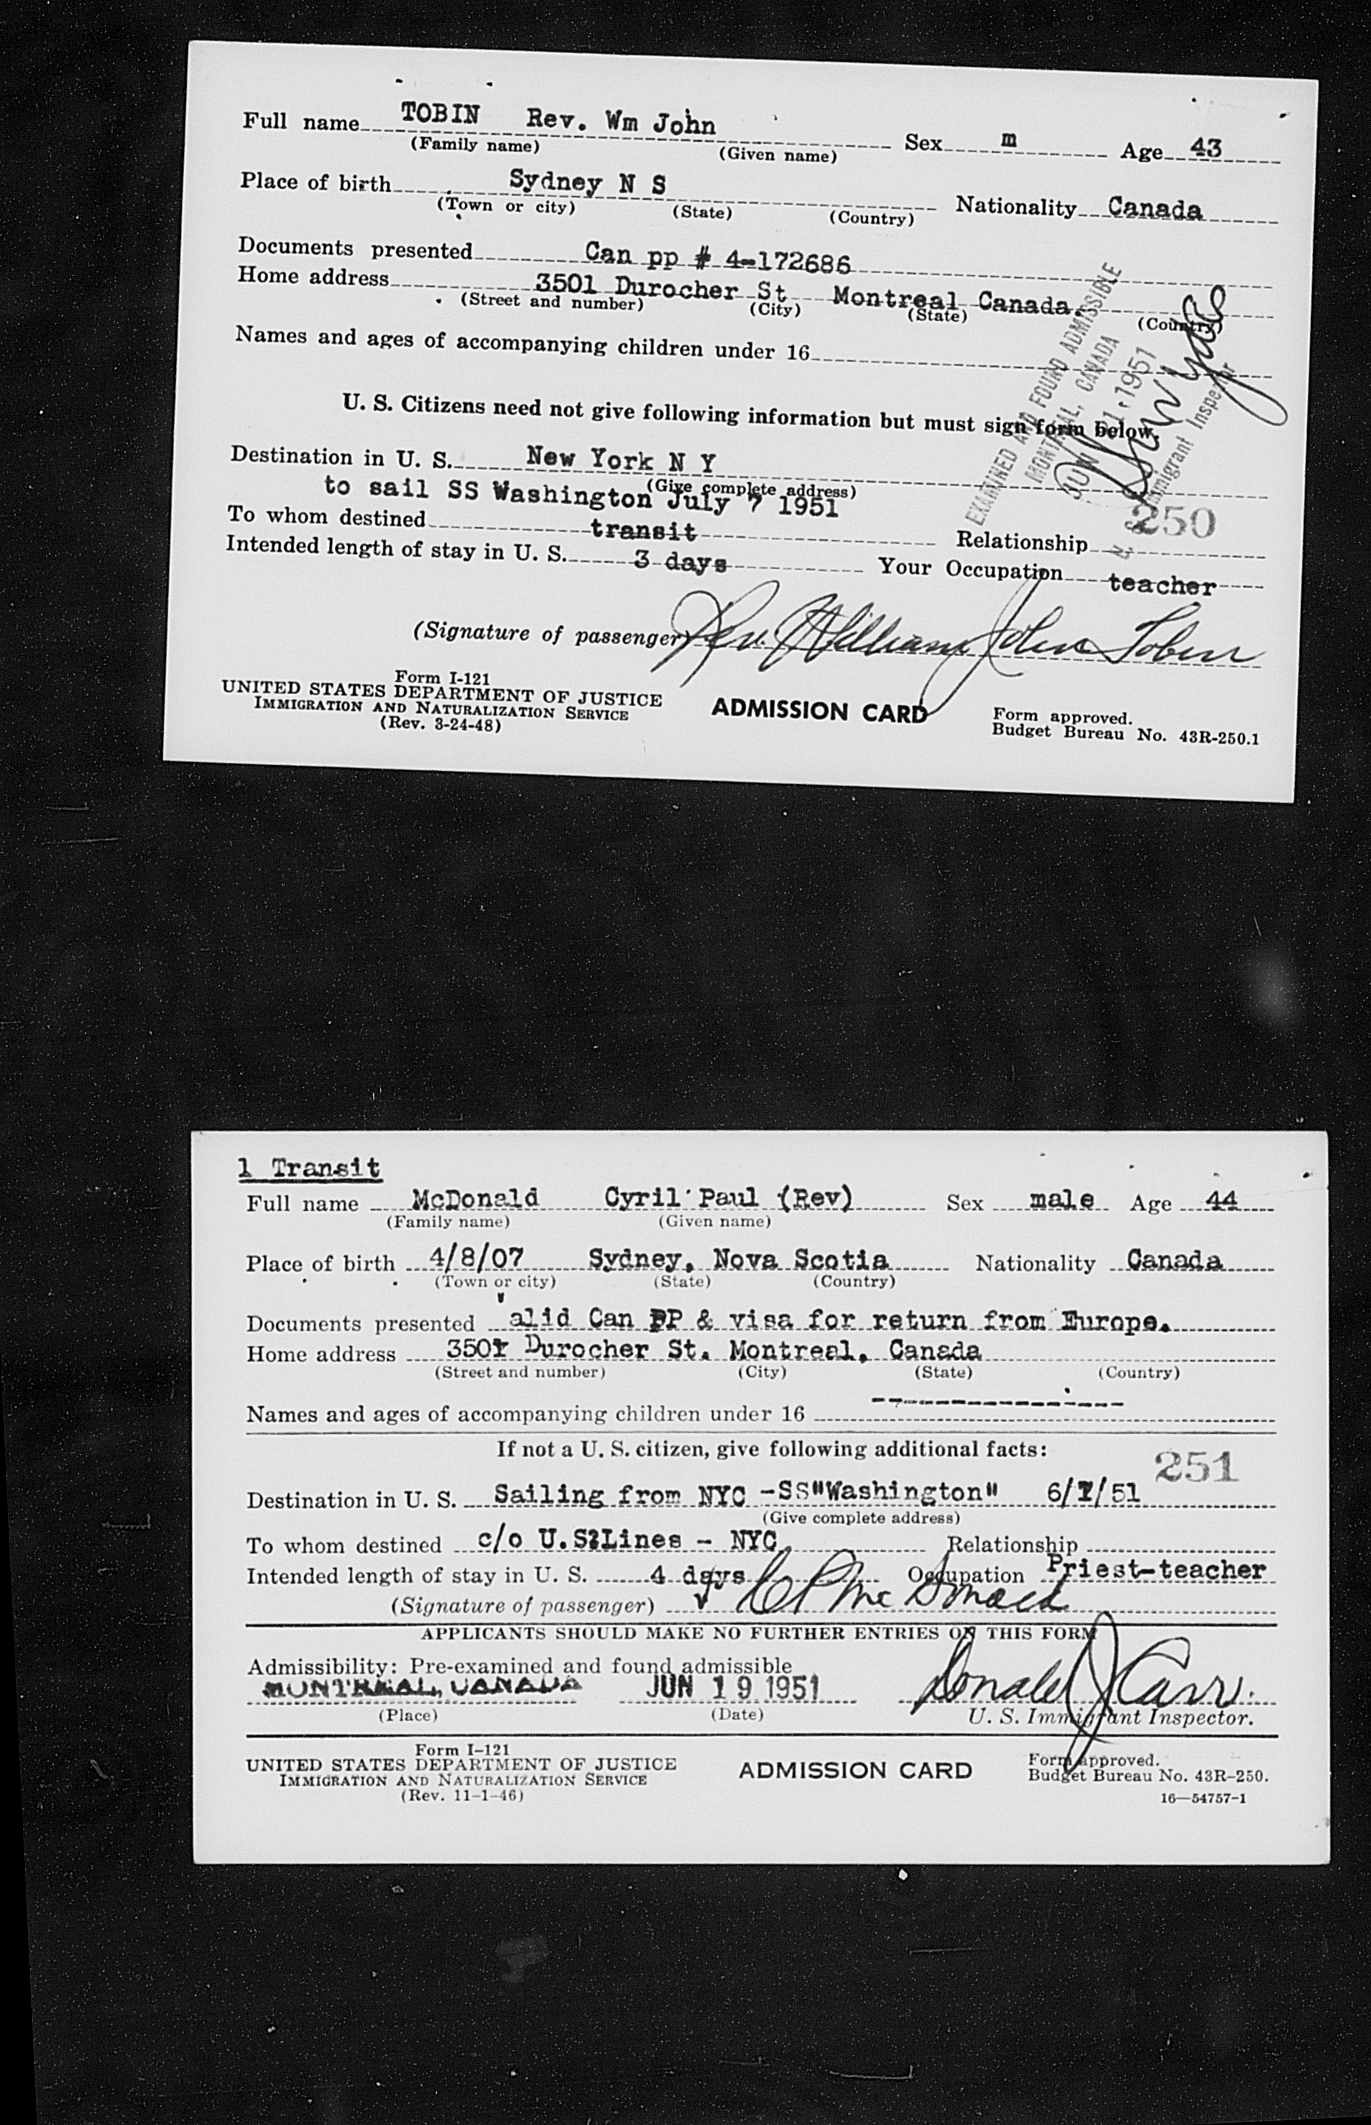 Full name TOBIN Rev. Wm John Sex m Age 43
(Family name) (Given name)
Place of birth Sydney N S Nationality Canada
(Town or city) (State) (Country)
Documents presented Can pp # 4-172686
Home address 3501 Durocher St Montreal Canada.
(Street and number) (City) (State) (Country)
Names and ages of accompanying children under 16
EXAMINED AND FOUND ADMISSIBLE
MONTREAL, CANADA
JUN 1951
Immigrant Inspector
U. S. Citizens need not give following information but must sign form below.
Destination in U. S. New York N Y
(Give complete address)
to sail SS Washington July 7 1951
250
To whom destined transit Relationship
Intended length of stay in U. S. 3 days Your Occupation teacher
(Signature of passenger) Rev. William John Tobin
Form I-121
UNITED STATES DEPARTMENT OF JUSTICE
IMMIGRATION AND NATURALIZATION SERVICE
(Rev. 3-24-48)
ADMISSION CARD
Form approved.
Budget Bureau No. 43R-250.1
1 Transit
Full name McDonald Cyril Paul (Rev) Sex male Age 44
(Family name) (Given name)
Place of birth 4/8/07 Sydney, Nova Scotia Nationality Canada
(Town or city) (State) (Country)
Documents presented valid Can PP & visa for return from Europe.
Home address 3501 Durocher St. Montreal, Canada
(Street and number) (City) (State) (Country)
Names and ages of accompanying children under 16 ----------------
If not a U. S. citizen, give following additional facts:
251
Destination in U. S. Sailing from NYC -SS"Washington" 6/7/51
(Give complete address)
To whom destined c/o U.S.Lines - NYC Relationship
Intended length of stay in U. S. 4 days Occupation Priest-teacher
(Signature of passenger) C P McDonald
APPLICANTS SHOULD MAKE NO FURTHER ENTRIES ON THIS FORM
Admissibility: Pre-examined and found admissible
MONTREAL, CANADA JUN 19 1951 Donald J Carr.
(Place) (Date) U. S. Immigrant Inspector.
Form I-121
UNITED STATES DEPARTMENT OF JUSTICE
IMMIGRATION AND NATURALIZATION SERVICE
(Rev. 11-1-46)
ADMISSION CARD
Form approved.
Budget Bureau No. 43R-250.
16—54757-1